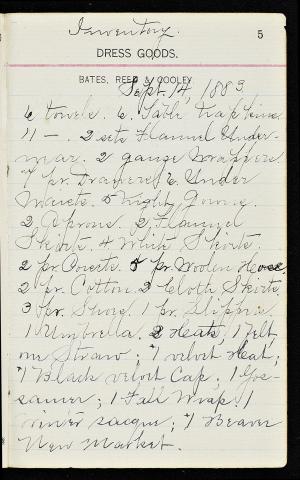 Inventory.
5
DRESS GOODS.
BATES, REED & COOLEY
Sept. 14, 1883
6 towels. 6 Table napkins
11 — . 2 sets Flannel Under-
wear. 2 gauze Wrappers
7 pr. Drawers 6 Under
Waists. 5 Night Gowns.
2 Aprons. 2 Flannel
Skirts. 4 White Skirts.
2 pr. Corsets. 5 pr. Woolen Hose.
2 pr. Cotton. 2 Cloth Skirts
3 pr. Shoes. 1 pr. Slippers.
1 Umbrella. 2 Hats, 1 Felt,
one Straw; 1 velvet Hat;
1 Black velvet Cap; 1 Gos-
samer; 1 Fall Wrap. 1
winter sacque; 1 Beaver
New Market.